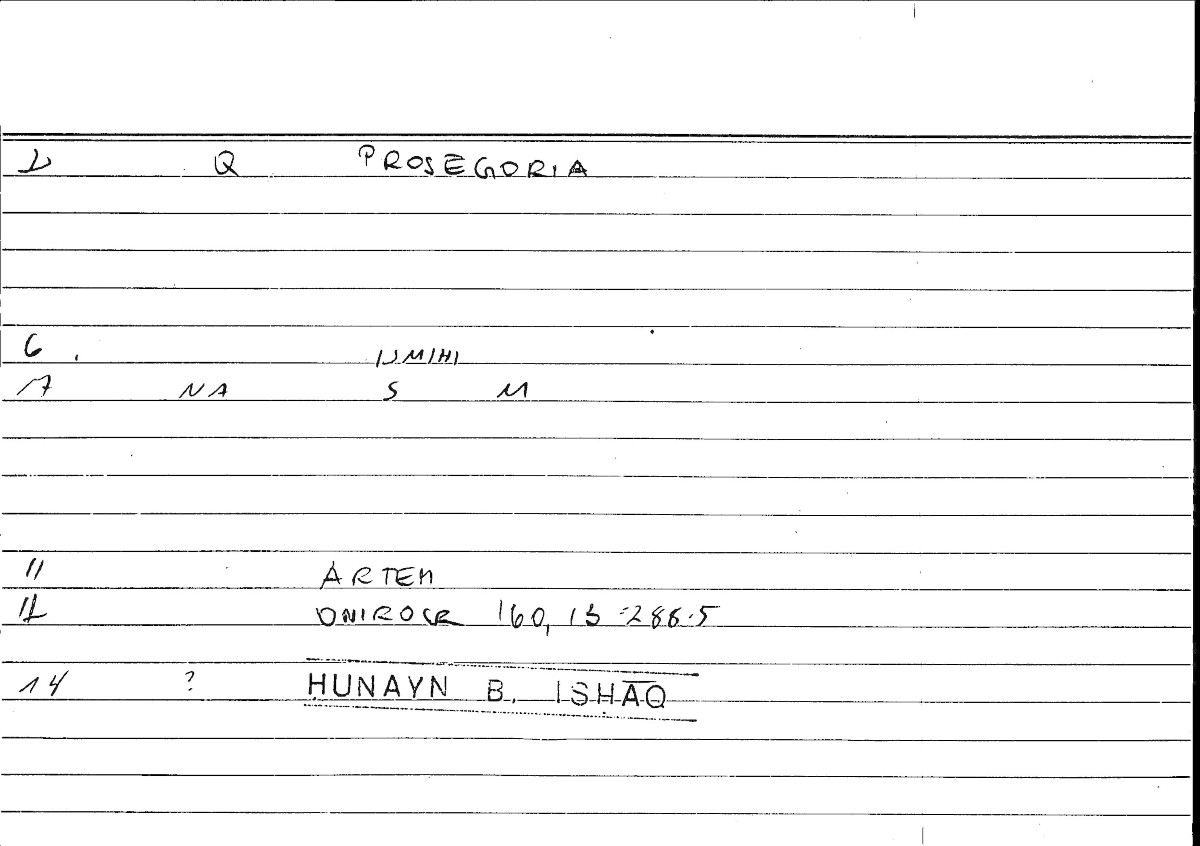 2 Q PROSEGORIA
6 ISMIHI
7 NA S M
11 ARTEM
12 ONIROCR 160,13-288.5
14 ? ḤUNAYN B. ISḤĀQ